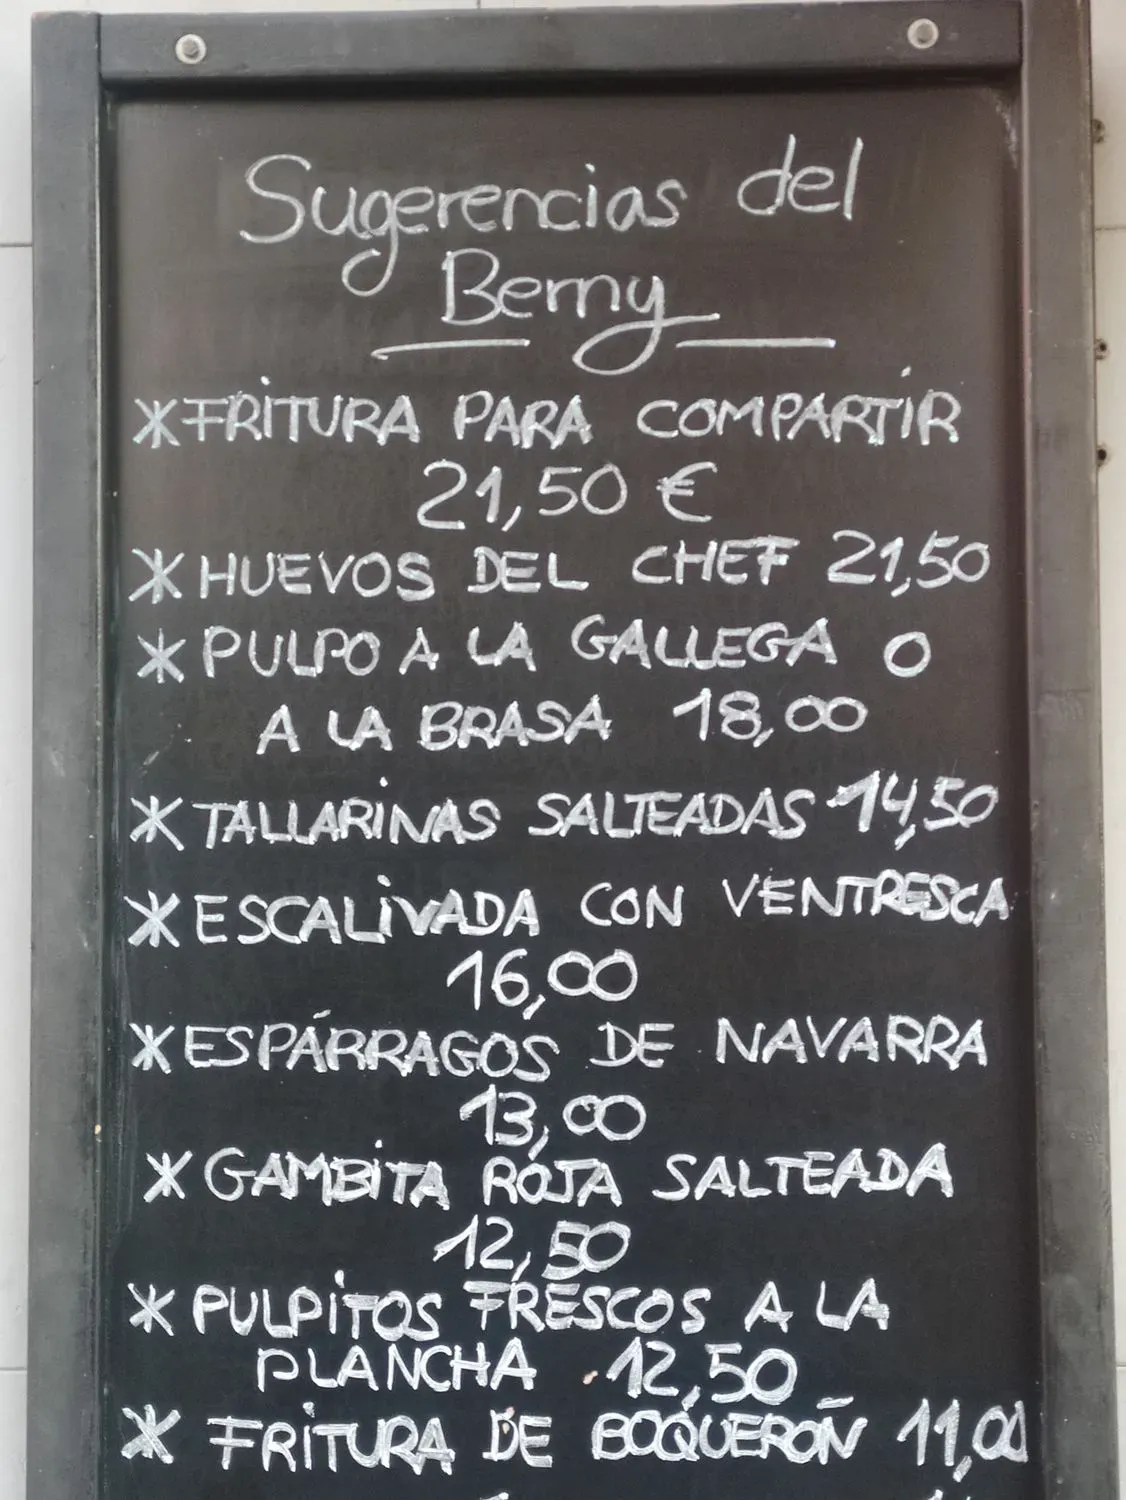 Sugerencias del
Berny
*FRITURA PARA COMPARTIR
21,50 €
*HUEVOS DEL CHEF 21,50
*PULPO A LA GALLEGA O
A LA BRASA 18,00
*TALLARINAS SALTEADAS 14,50
*ESCALIVADA CON VENTRESCA
16,00
*ESPÁRRAGOS DE NAVARRA
13,00
*GAMBITA ROJA SALTEADA
12,50
*PULPITOS FRESCOS A LA
PLANCHA 12,50
* FRITURA DE BOQUEROÑ 11,00